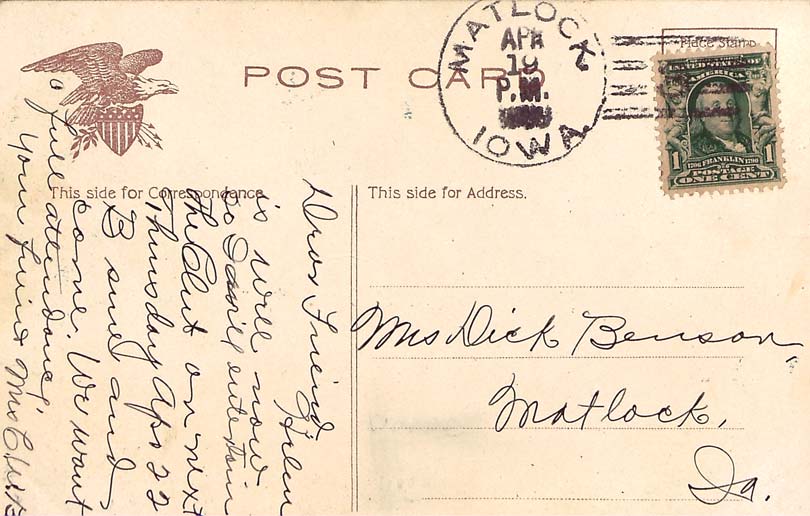 POST CARD
Place Stamp
MATLOCK
APR
19
P.M.
IOWA
UNITED STATES OF
AMERICA
1 1706 FRANKLIN 1790 1
POSTAGE
ONE CENT
This side for Correspondence
This side for Address.
Dear Friend,
Helen
is well now
so I will entertain
the Club on next
Thursday Apr 22
B sure and
come. We want
a full attendance,
Your friend Mrs
Mrs Dick Benson,
Matlock,
Ia.